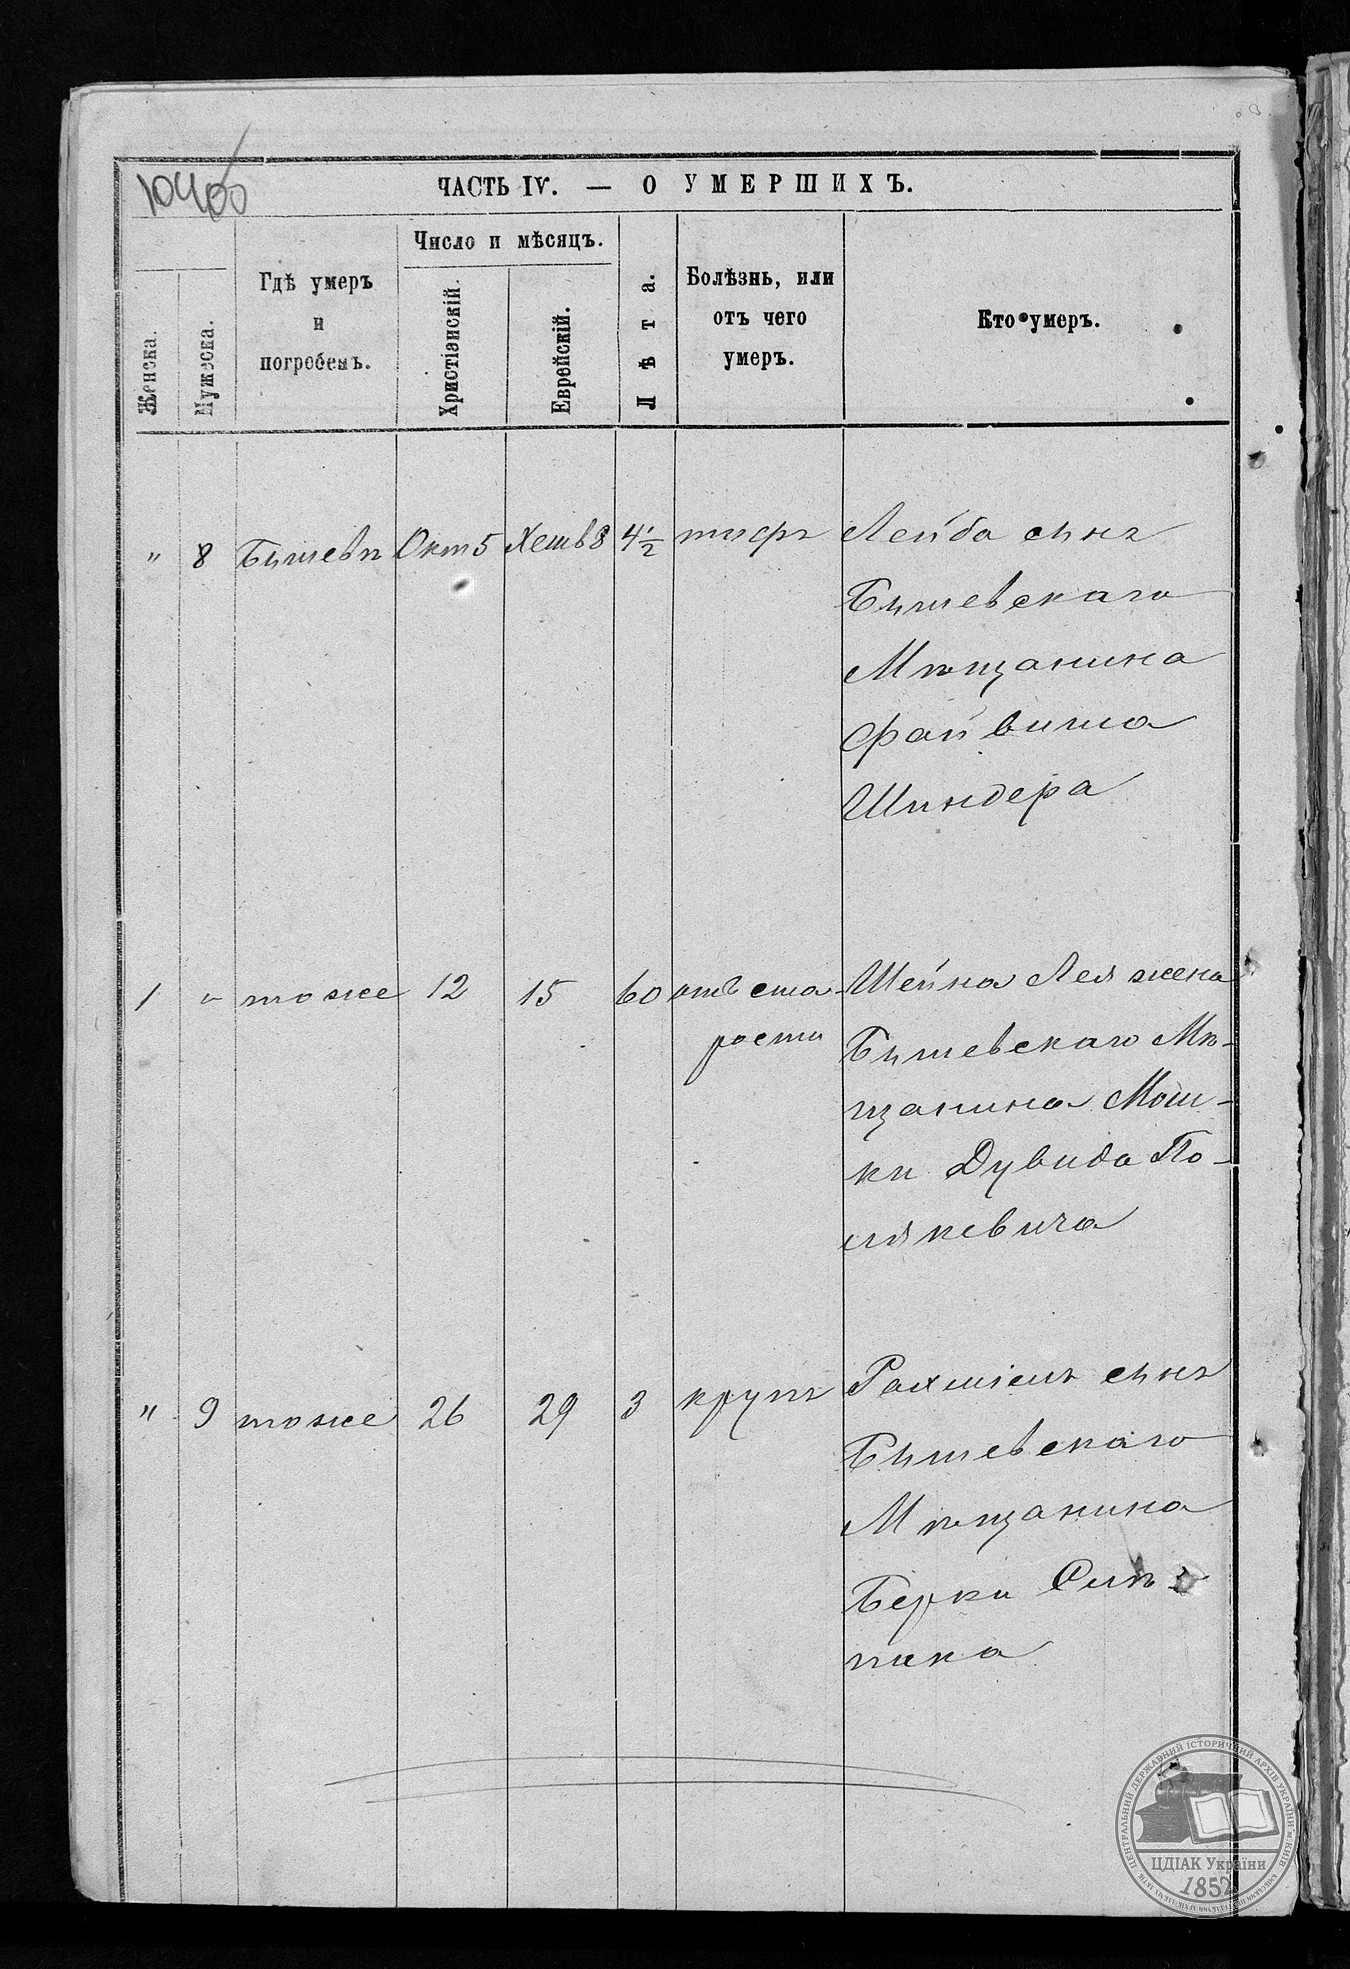 ЧАСТЬ IV. — О УМЕРШИХЪ.
Женска.
Мужеска.
Гдѣ умеръ
и
погребенъ.
Число и мѣсяцъ.
Христіанскій.
Еврейскій.
Лѣта.
Болѣзнь, или
отъ чего
умеръ.
Кто умеръ.
" 8 Бышевѣ Окт 5 Хешв 8 4 1/2 тифъ Лейба сынъ
Бышевскаго
Мѣщанина
Файвиша
Шиндера
1 " тоже 12 15 60 отъ ста-
рости
Шейна Лея жена
Бышевскаго Мѣ-
щанина Мош-
ки Дувида По-
лякевича
" 9 тоже 26 29 3 крупъ Рахміель сынъ
Бышевскаго
Мѣщанина
Берки Слѣ-
пака
ЦЕНТРАЛЬНИЙ ДЕРЖАВНИЙ ІСТОРИЧНИЙ АРХІВ УКРАЇНИ, м. КИЇВ
ЦДІАК України
1852